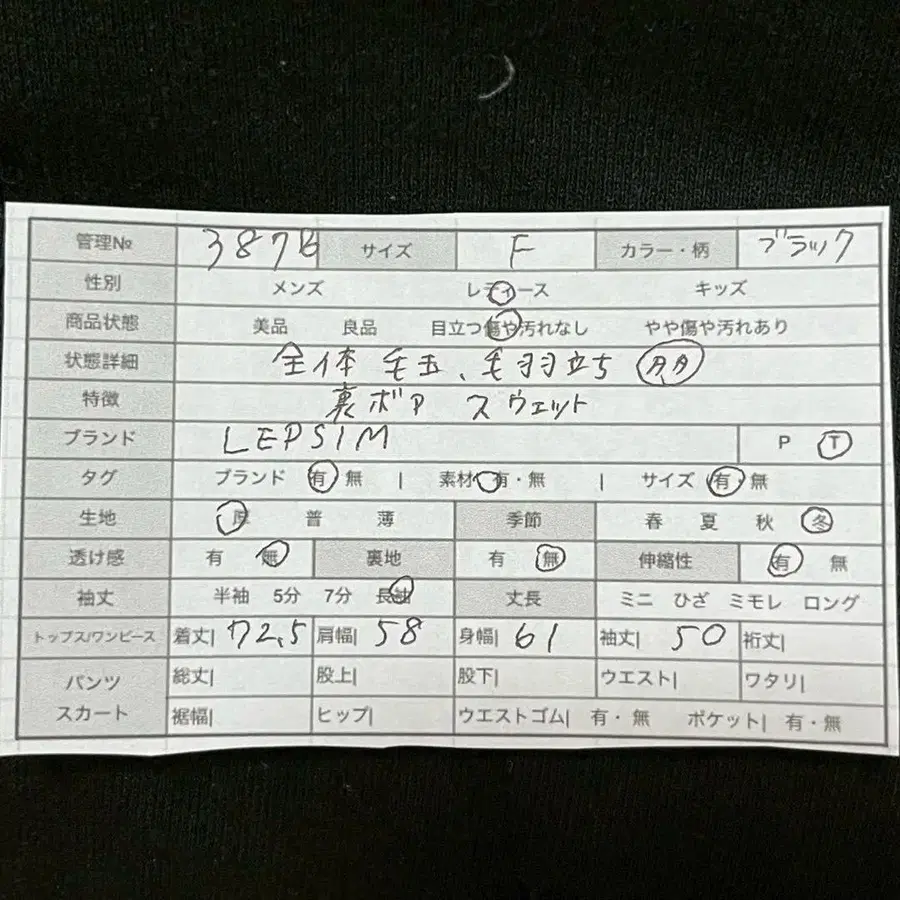 管理№ 387B サイズ F カラー・柄 ブラック
性別 メンズ レディース キッズ
商品状態 美品 良品 目立つ傷や汚れなし やや傷や汚れあり
状態詳細 全体 毛玉、毛羽立ち
特徴 裏ボア スウェット
ブランド LEPSIM P T
タグ ブランド 有・無 | 素材 有・無 | サイズ 有・無
生地 厚 普 薄 季節 春 夏 秋 冬
透け感 有 無 裏地 有 無 伸縮性 有 無
袖丈 半袖 5分 7分 長袖 丈長 ミニ ひざ ミモレ ロング
トップス/ワンピース 着丈| 72.5 肩幅| 58 身幅| 61 袖丈| 50 裄丈|
パンツ スカート 総丈| 股上| 股下| ウエスト| ワタリ|
裾幅| ヒップ| ウエストゴム| 有・無 ポケット| 有・無